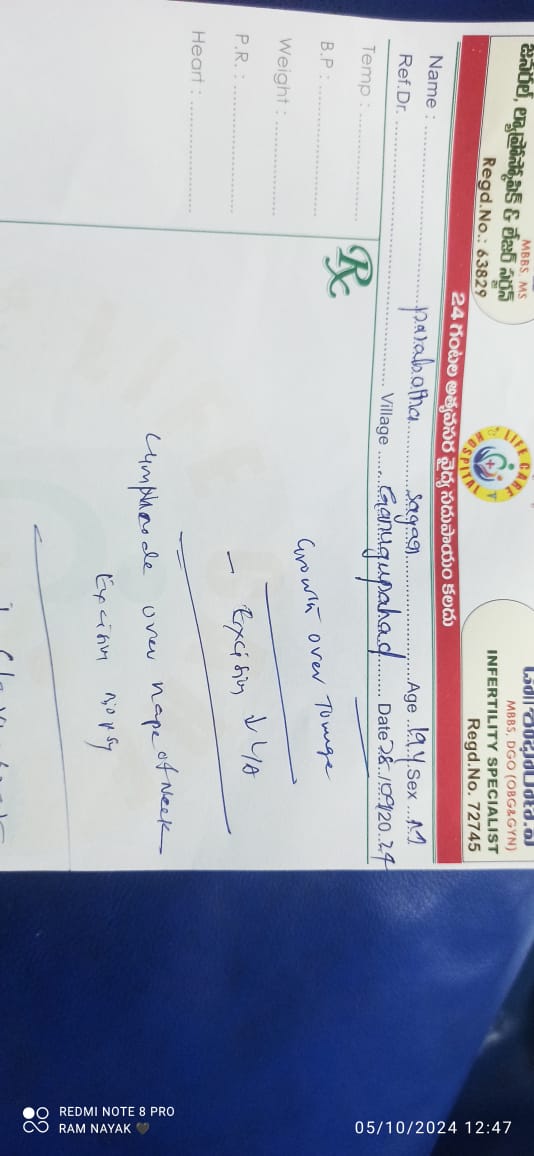 జనరల్, ల్యాప్రోస్కోపిక్ & లేజర్ సర్జన్
MBBS, MS
Regd.No.: 63829
LIFE CARE
HOSPITAL
MBBS, DGO (OBG&GYN)
INFERTILITY SPECIALIST
Regd.No. 72745
24 గంటల అత్యవసర వైద్య సదుపాయం కలదు
Name : parabatha sagar Age 19.Y. Sex M
Ref.Dr. Village Ganugupahad Date 28/09/2024
Temp :
B.P :
Weight :
P.R. :
Heart :
Rx
Growth over Tongue
- Excision ↓ L/A
Lymphnode over nape of Neck
Excision Biopsy
REDMI NOTE 8 PRO
RAM NAYAK 🖤
05/10/2024 12:47